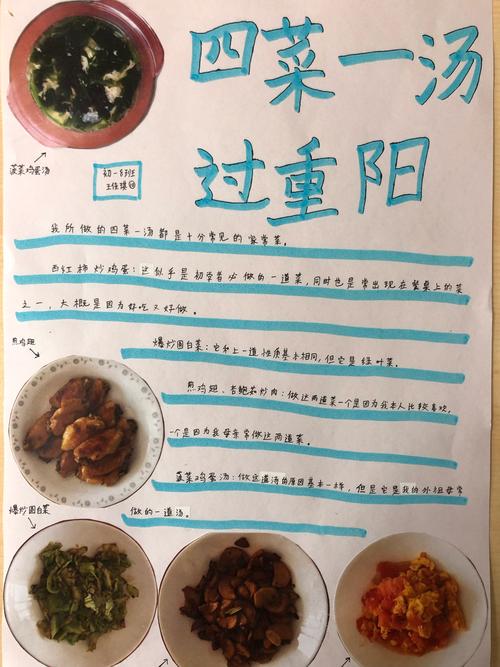 四菜一汤
过重阳
菠菜鸡蛋汤
我所做的四菜一汤都是十分常见的家常菜。
西红柿炒鸡蛋：这似乎是初学者必做的一道菜，同时也是常出现在餐桌上的菜
之一，大概是因为好吃又好做。
爆炒圆白菜：它和上一道性质基本相同，但它是绿叶菜。
煎鸡翅
煎鸡翅、杏鲍菇炒肉：做这两道菜一个是因为我本人比较喜欢，
一个是因为我母亲常做这两道菜。
菠菜鸡蛋汤：做这道汤的原因基本一样，但是它是我的外祖母常
做的一道汤。
爆炒圆白菜